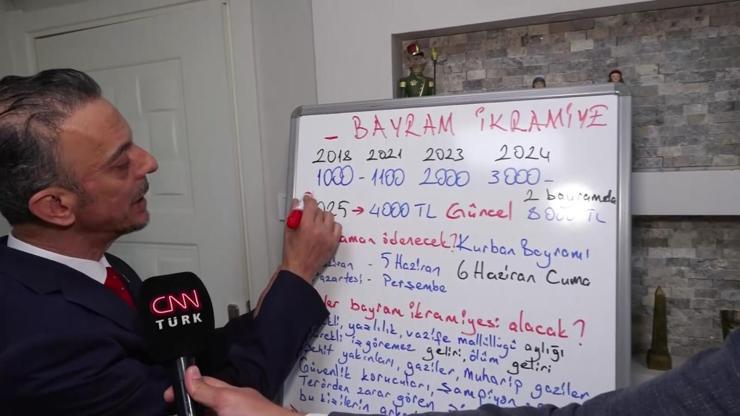 - BAYRAM İKRAMİYE
2018 2021 2023 2024
1000 - 1100 2000 3000 -
2 bayramda
→ 4000 TL Güncel 8000 TL
ödenecek? Kurban Bayramı
- 5 Haziran 6 Haziran Cuma
- Perşembe
bayram ikramiyesi alacak?
yaşlılık, vazife malüllüğü aylığı
iş göremez geliri, ölüm geliri
yakınları, gaziler, muharip gaziler
Güvenlik korucuları, şampiyon
Terörden zarar gören
bu kişilerin
CNN
TÜRK